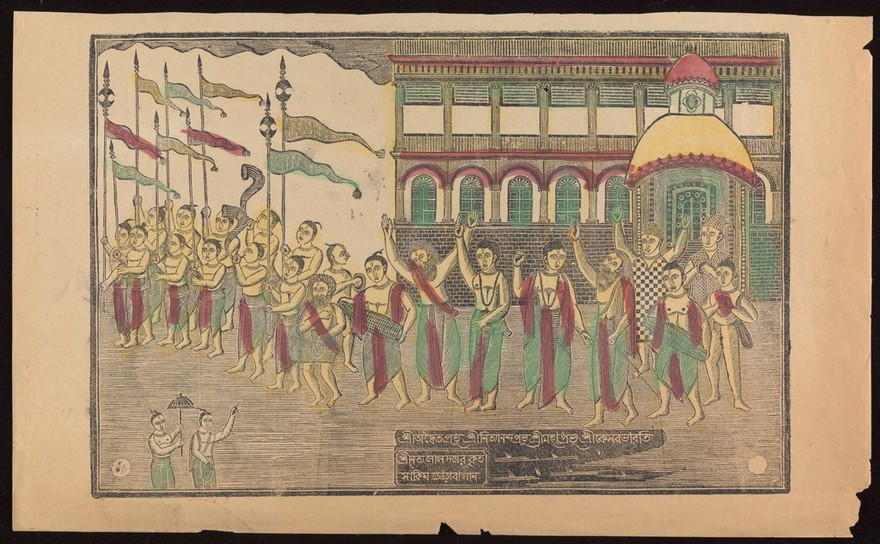 শ্রীঅদ্বৈতপ্রভু শ্রীনিতানন্দপ্রভু শ্রীমহাপ্রভু শ্রীকেসবভারতি
শ্রীনৃত্যলাল দত্তর কৃত
সাকিম জোড়াবাগান